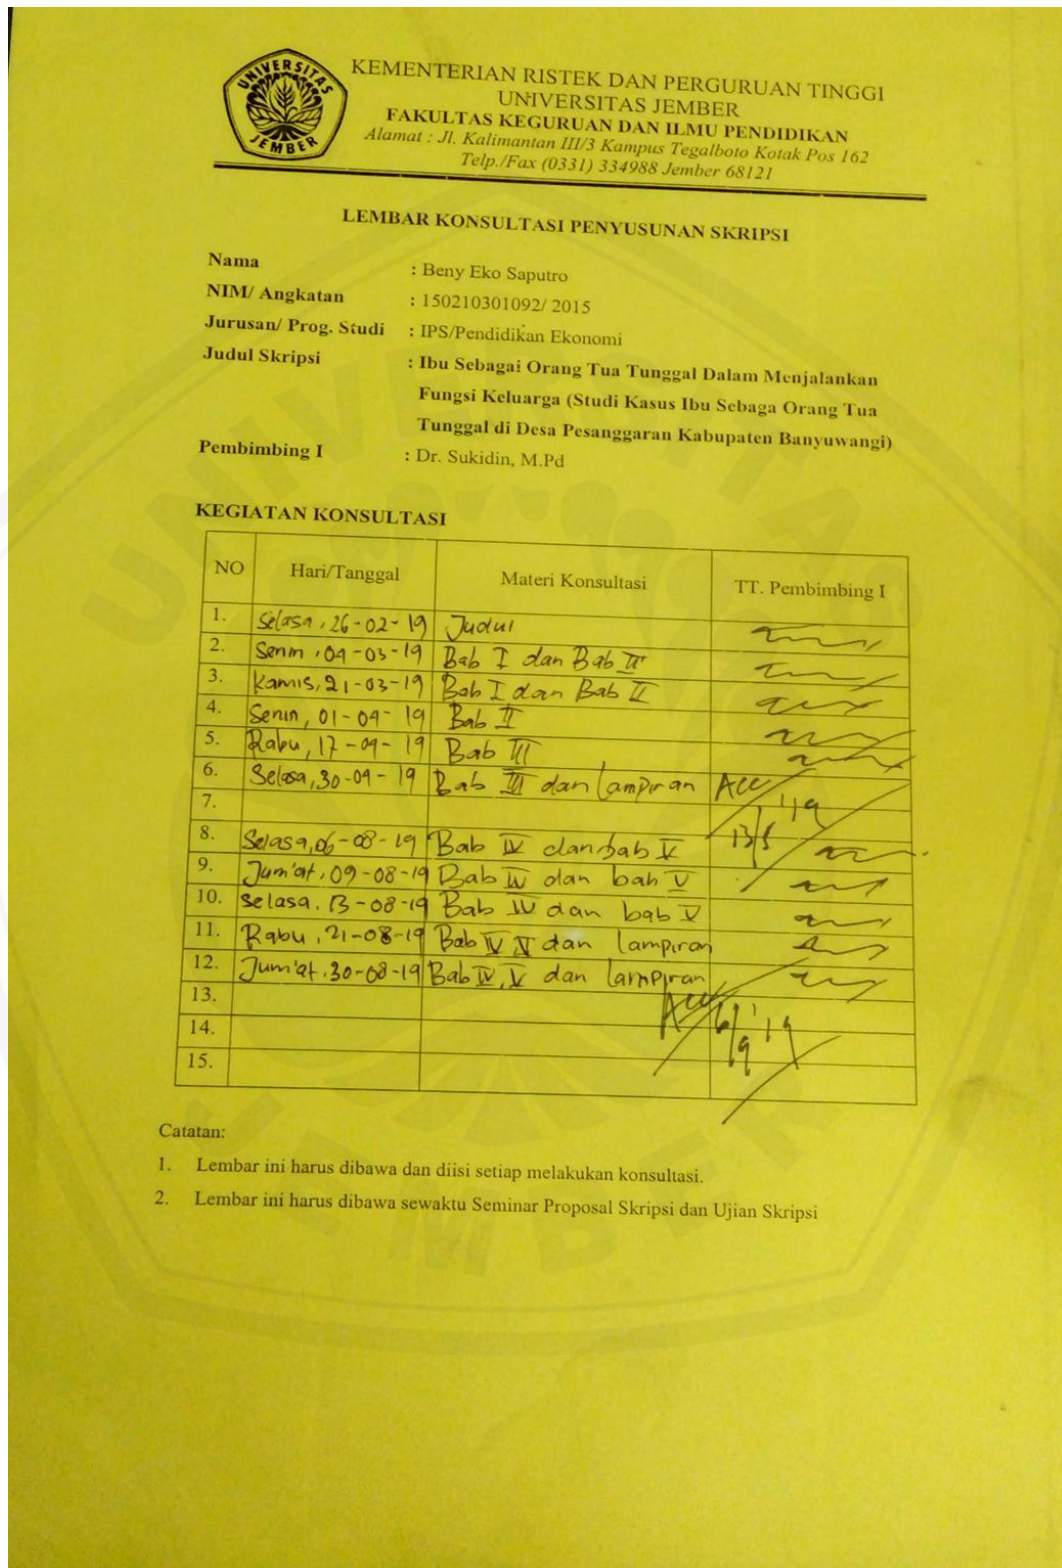 UNIVERSITAS
JEMBER
KEMENTERIAN RISTEK DAN PERGURUAN TINGGI
UNIVERSITAS JEMBER
FAKULTAS KEGURUAN DAN ILMU PENDIDIKAN
Alamat : Jl. Kalimantan III/3 Kampus Tegalboto Kotak Pos 162
Telp./Fax (0331) 334988 Jember 68121
LEMBAR KONSULTASI PENYUSUNAN SKRIPSI
Nama : Beny Eko Saputro
NIM/ Angkatan : 150210301092/ 2015
Jurusan/ Prog. Studi : IPS/Pendidikan Ekonomi
Judul Skripsi : Ibu Sebagai Orang Tua Tunggal Dalam Menjalankan
Fungsi Keluarga (Studi Kasus Ibu Sebaga Orang Tua
Tunggal di Desa Pesanggaran Kabupaten Banyuwangi)
Pembimbing I : Dr. Sukidin, M.Pd
KEGIATAN KONSULTASI
NO Hari/Tanggal Materi Konsultasi TT. Pembimbing I
1. Selasa, 26-02-19 Judul
2. Senin, 04-03-19 Bab I dan Bab II
3. Kamis, 21-03-19 Bab I dan Bab II
4. Senin, 01-04-19 Bab II
5. Rabu, 17-04-19 Bab III
6. Selasa, 30-04-19 Bab III dan lampiran ACC
7. 13/5 '19
8. Selasa, 06-08-19 Bab IV dan bab V
9. Jum'at, 09-08-19 Bab IV dan bab V
10. Selasa, 13-08-19 Bab IV dan bab V
11. Rabu, 21-08-19 Bab IV V dan lampiran
12. Jum'at, 30-08-19 Bab IV, V dan lampiran
13. ACC 6/9 '19
14.
15.
Catatan:
1. Lembar ini harus dibawa dan diisi setiap melakukan konsultasi.
2. Lembar ini harus dibawa sewaktu Seminar Proposal Skripsi dan Ujian Skripsi